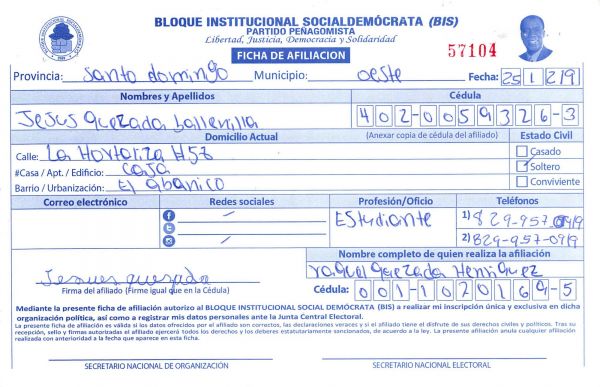 BLOQUE INSTITUCIONAL SOCIALDEMÓCRATA (BIS)
PARTIDO PEÑAGOMISTA
Libertad, Justicia, Democracia y Solidaridad
FICHA DE AFILIACION
57104
Provincia: Santo domingo Municipio: oeste Fecha: 25 1 219
Nombres y Apellidos Cédula
Jesus quezada 402-0059326-3
Domicilio Actual (Anexar copia de cédula del afiliado) Estado Civil
Calle: La Hortaliza #58 Casado
#Casa / Apt. / Edificio: casa Soltero
Barrio / Urbanización: El abanico Conviviente
Correo electrónico Redes sociales Profesión/Oficio Teléfonos
Estudiante 1) 829-957-0919
2) 829-957-0919
Nombre completo de quien realiza la afiliación
Jesus quezada raquel quezada Henriquez
Firma del afiliado (Firme igual que en la Cédula) Cédula: 001-1070169-5
Mediante la presente ficha de afiliación autorizo al BLOQUE INSTITUCIONAL SOCIAL DEMÓCRATA (BIS) a realizar mi inscripción única y exclusiva en dicha
organización política, así como a registrar mis datos personales ante la Junta Central Electoral.
La presente ficha de afiliación es válida si los datos ofrecidos por el afiliado son correctos, las declaraciones veraces y si el afiliado tiene el disfrute de sus derechos civiles y políticos. Tras su
recepción, sello y firmas autorizadas el afiliado ejercerá todos los derechos y los deberes estatutariamente sancionados, de acuerdo a la ley. La presente afiliación anula cualquier afiliación
realizada con anterioridad a la fecha que aparece en esta ficha.
SECRETARIO NACIONAL DE ORGANIZACIÓN SECRETARIO NACIONAL ELECTORAL